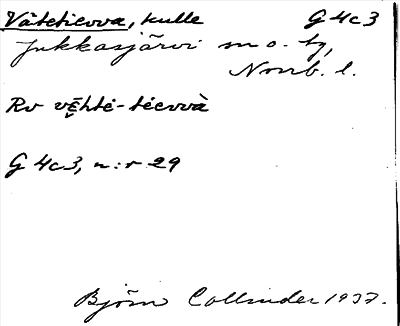 Vätetievva, kulle G 4c3
Jukkasjärvi sn o. tg,
Norrb. l.
Rv vē̮htė-tievvà
G 4c3, n:r 29
Björn Collinder 1937.